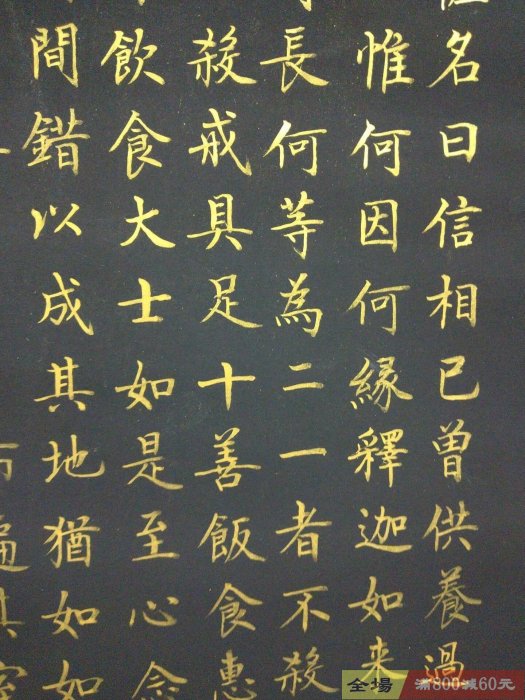 名曰信相已曾供養過
惟何因何緣釋迦如來
長何等為二一者不殺
殺戒具足十善飯食惠
飲食大士如是至心念
間錯以成其地猶如如
全場 滿800減60元